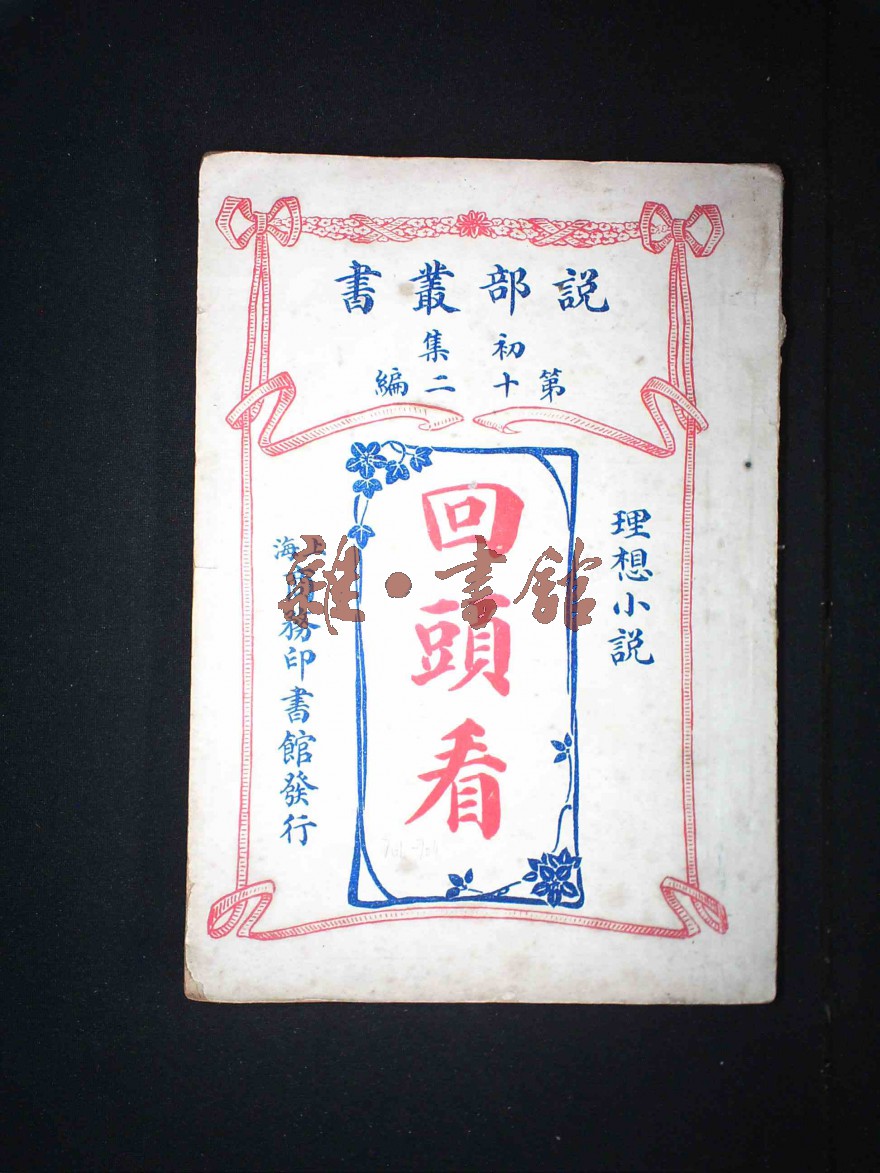 說部叢書
初集
第十二編
理想小說
回頭看
上海商務印書館發行
雜·書館